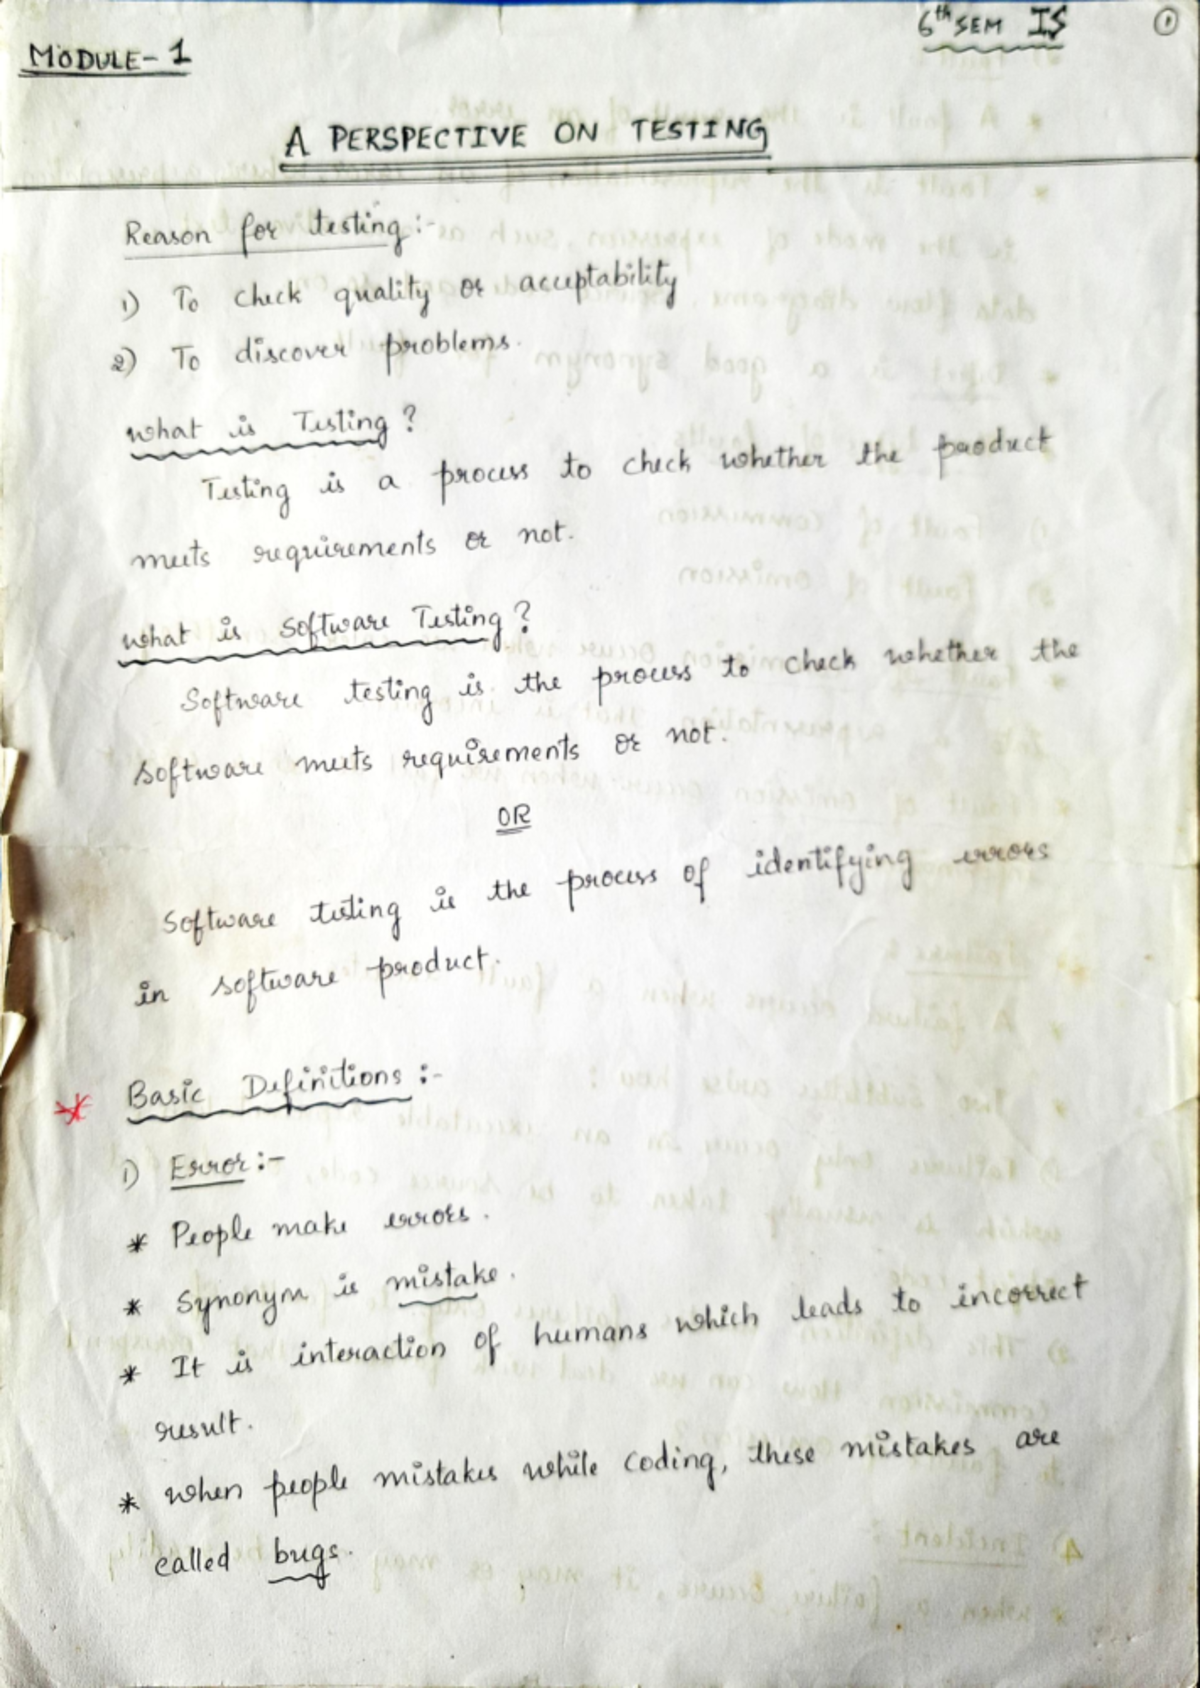 6th SEM IS
1
MODULE-1
A PERSPECTIVE ON TESTING
Reason for testing:-
1) To check quality or acceptability
2) To discover problems.
what is Testing?
Testing is a process to check whether the product
meets requirements or not.
what is software Testing?
Software testing is the process to check whether the
software meets requirements or not.
OR
Software testing is the process of identifying errors
in software product.
* Basic Definitions:-
1) Error:-
* People make errors.
* Synonym is mistake.
* It is interaction of humans which leads to incorrect
result.
* when people mistakes while coding, these mistakes are
called bugs.